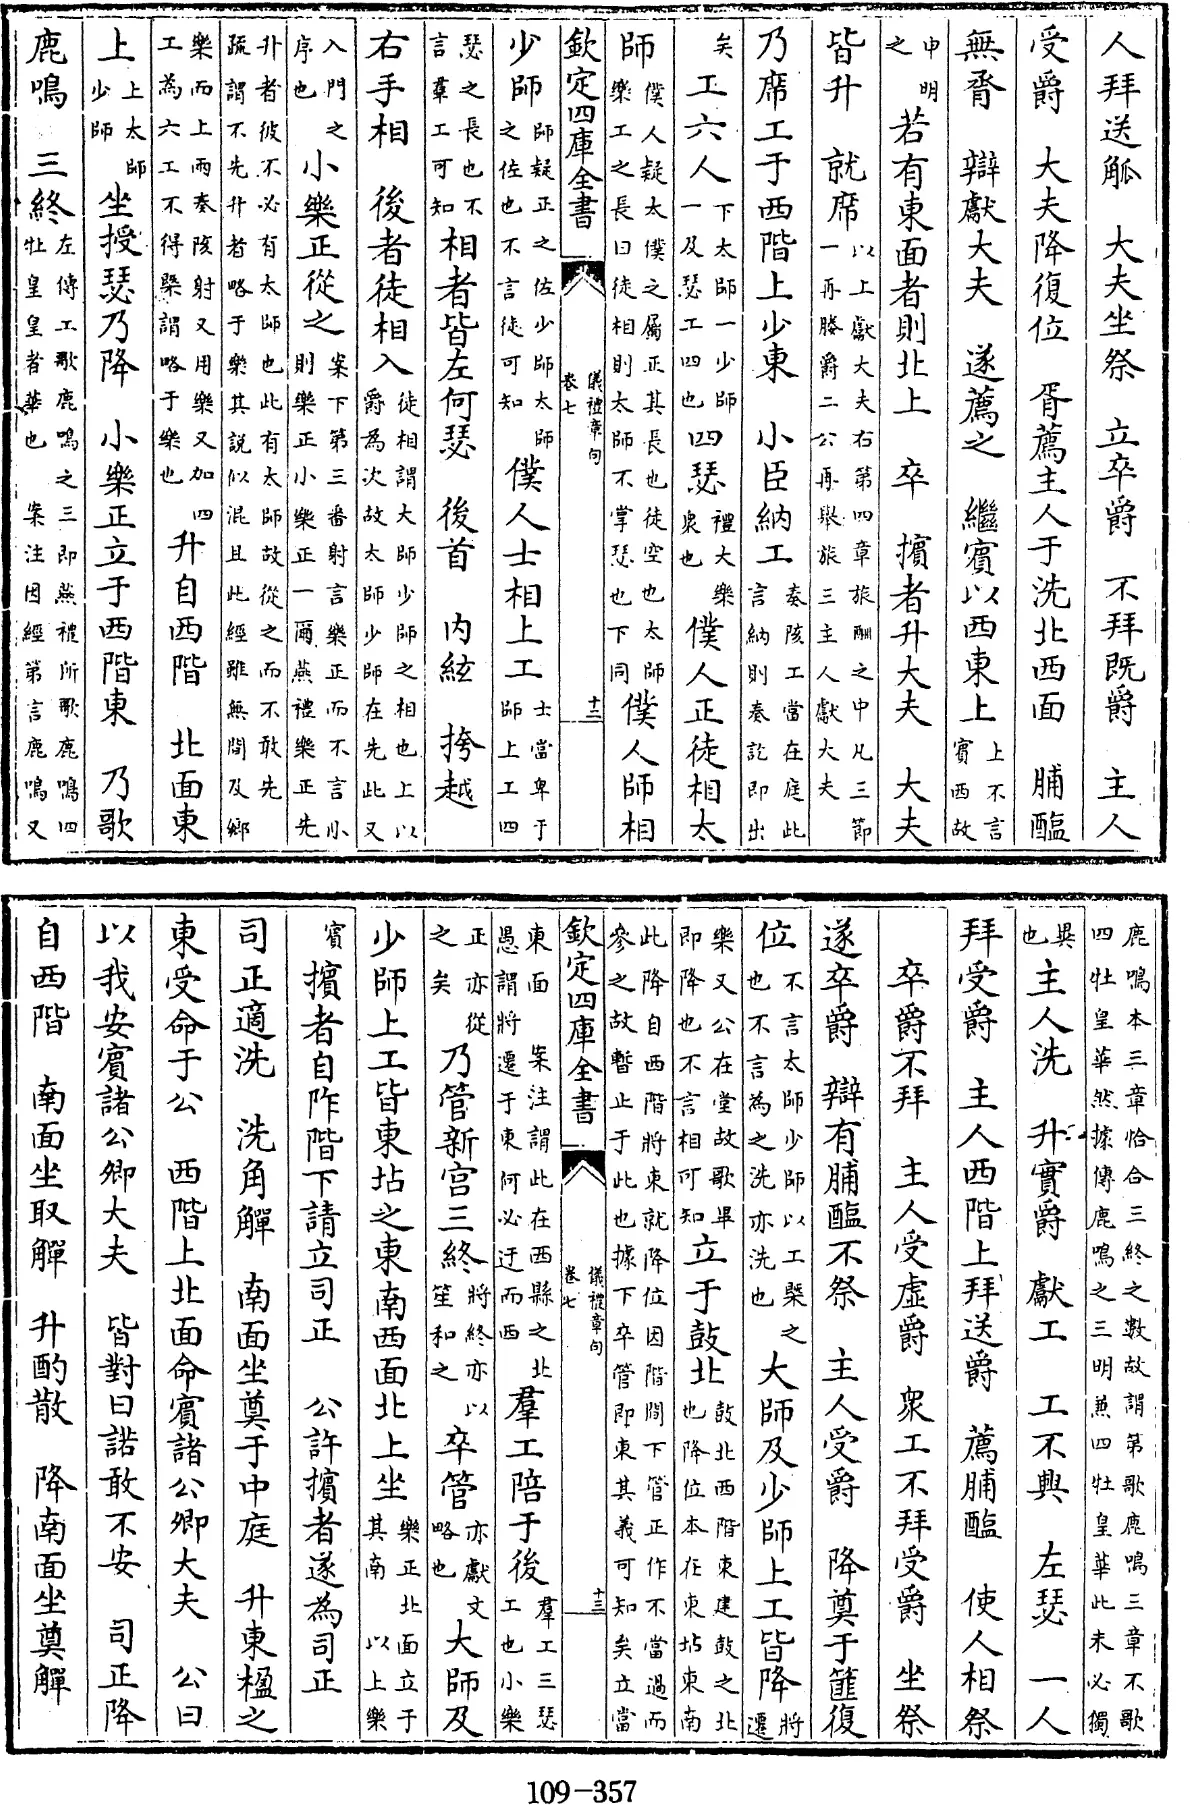 人拜送觚 大夫坐祭 立卒爵 不拜既爵 主人
受爵 大夫降復位 胥薦主人于洗北西面 脯醢
無脀 辯獻大夫 遂薦之 繼賓以西東上 上不言賓西故
申明之 若有東面者則北上 卒 擯者升大夫 大夫
皆升 就席 以上獻大夫右第四章旅酬之中凡三節一再媵爵二公再舉旅三主人獻大夫
乃席工于西階上少東 小臣納工 奏陔工當在庭此言納則奏訖即出
矣 工六人 下太師一少師一及瑟工四也 四瑟 禮大樂衆也 僕人正徒相太
師 僕人疑太僕之屬正其長也徒空也太師樂工之長曰徒相則太師不掌瑟也下同 僕人師相
欽定四庫全書 儀禮章句 卷七 十二
少師 師疑正之佐少師太師之佐也不言徒可知 僕人士相上工 士當卑于師上工四
瑟之長也不言羣工可知 相者皆左何瑟 後首 内絃 挎越
右手相 後者徒相入 徒相謂大師少師之相也上以爵為次故太師少師在先此又
入門之序也 小樂正從之 案下第三番射言樂正而不言小則樂正小樂正一爾燕禮樂正先
升者彼不必有太師也此有太師故從之而不敢先疏謂不先升者略于樂其説似混且此經雖無間及鄉
樂而上兩奏陔射又用樂又加四工為六工不得槩謂略于樂也 升自西階 北面東
上 上太師少師 坐授瑟乃降 小樂正立于西階東 乃歌
鹿鳴 三終 左傳工歌鹿鳴之三即燕禮所歌鹿鳴四牡皇皇者華也 案注因經第言鹿鳴又
鹿鳴本三章恰合三終之數故謂第歌鹿鳴三章不歌四牡皇華然據傳鹿鳴之三明兼四牡皇華此未必獨
異也 主人洗 升實爵 獻工 工不興 左瑟 一人
拜受爵 主人西階上拜送爵 薦脯醢 使人相祭
卒爵不拜 主人受虛爵 衆工不拜受爵 坐祭
遂卒爵 辯有脯醢不祭 主人受爵 降奠于篚復
位 不言太師少師以工槩之也不言為之洗亦洗也 大師及少師上工皆降 將遷
樂又公在堂故歌畢即降也不言相可知 立于鼓北 鼓北西階東建鼓之北也降位本在東坫東南
此降自西階將東就降位因階間下管正作不當過而參之故暫止于此也據下卒管即東其義可知矣立當
欽定四庫全書 儀禮章句 卷七 十三
東面 案注謂此在西縣之北愚謂將遷于東何必迂而西 羣工陪于後 羣工三瑟工也小樂
正亦從之矣 乃管新宫三終 將終亦以笙和之 卒管 亦獻文略也 大師及
少師上工皆東坫之東南西面北上坐 樂正北面立于其南 以上樂
賓 擯者自阼階下請立司正 公許擯者遂為司正
司正適洗 洗角觶 南面坐奠于中庭 升東楹之
東受命于公 西階上北面命賓諸公卿大夫 公曰
以我安賓諸公卿大夫 皆對曰諾敢不安 司正降
自西階 南面坐取觶 升酌散 降南面坐奠觶
109-357